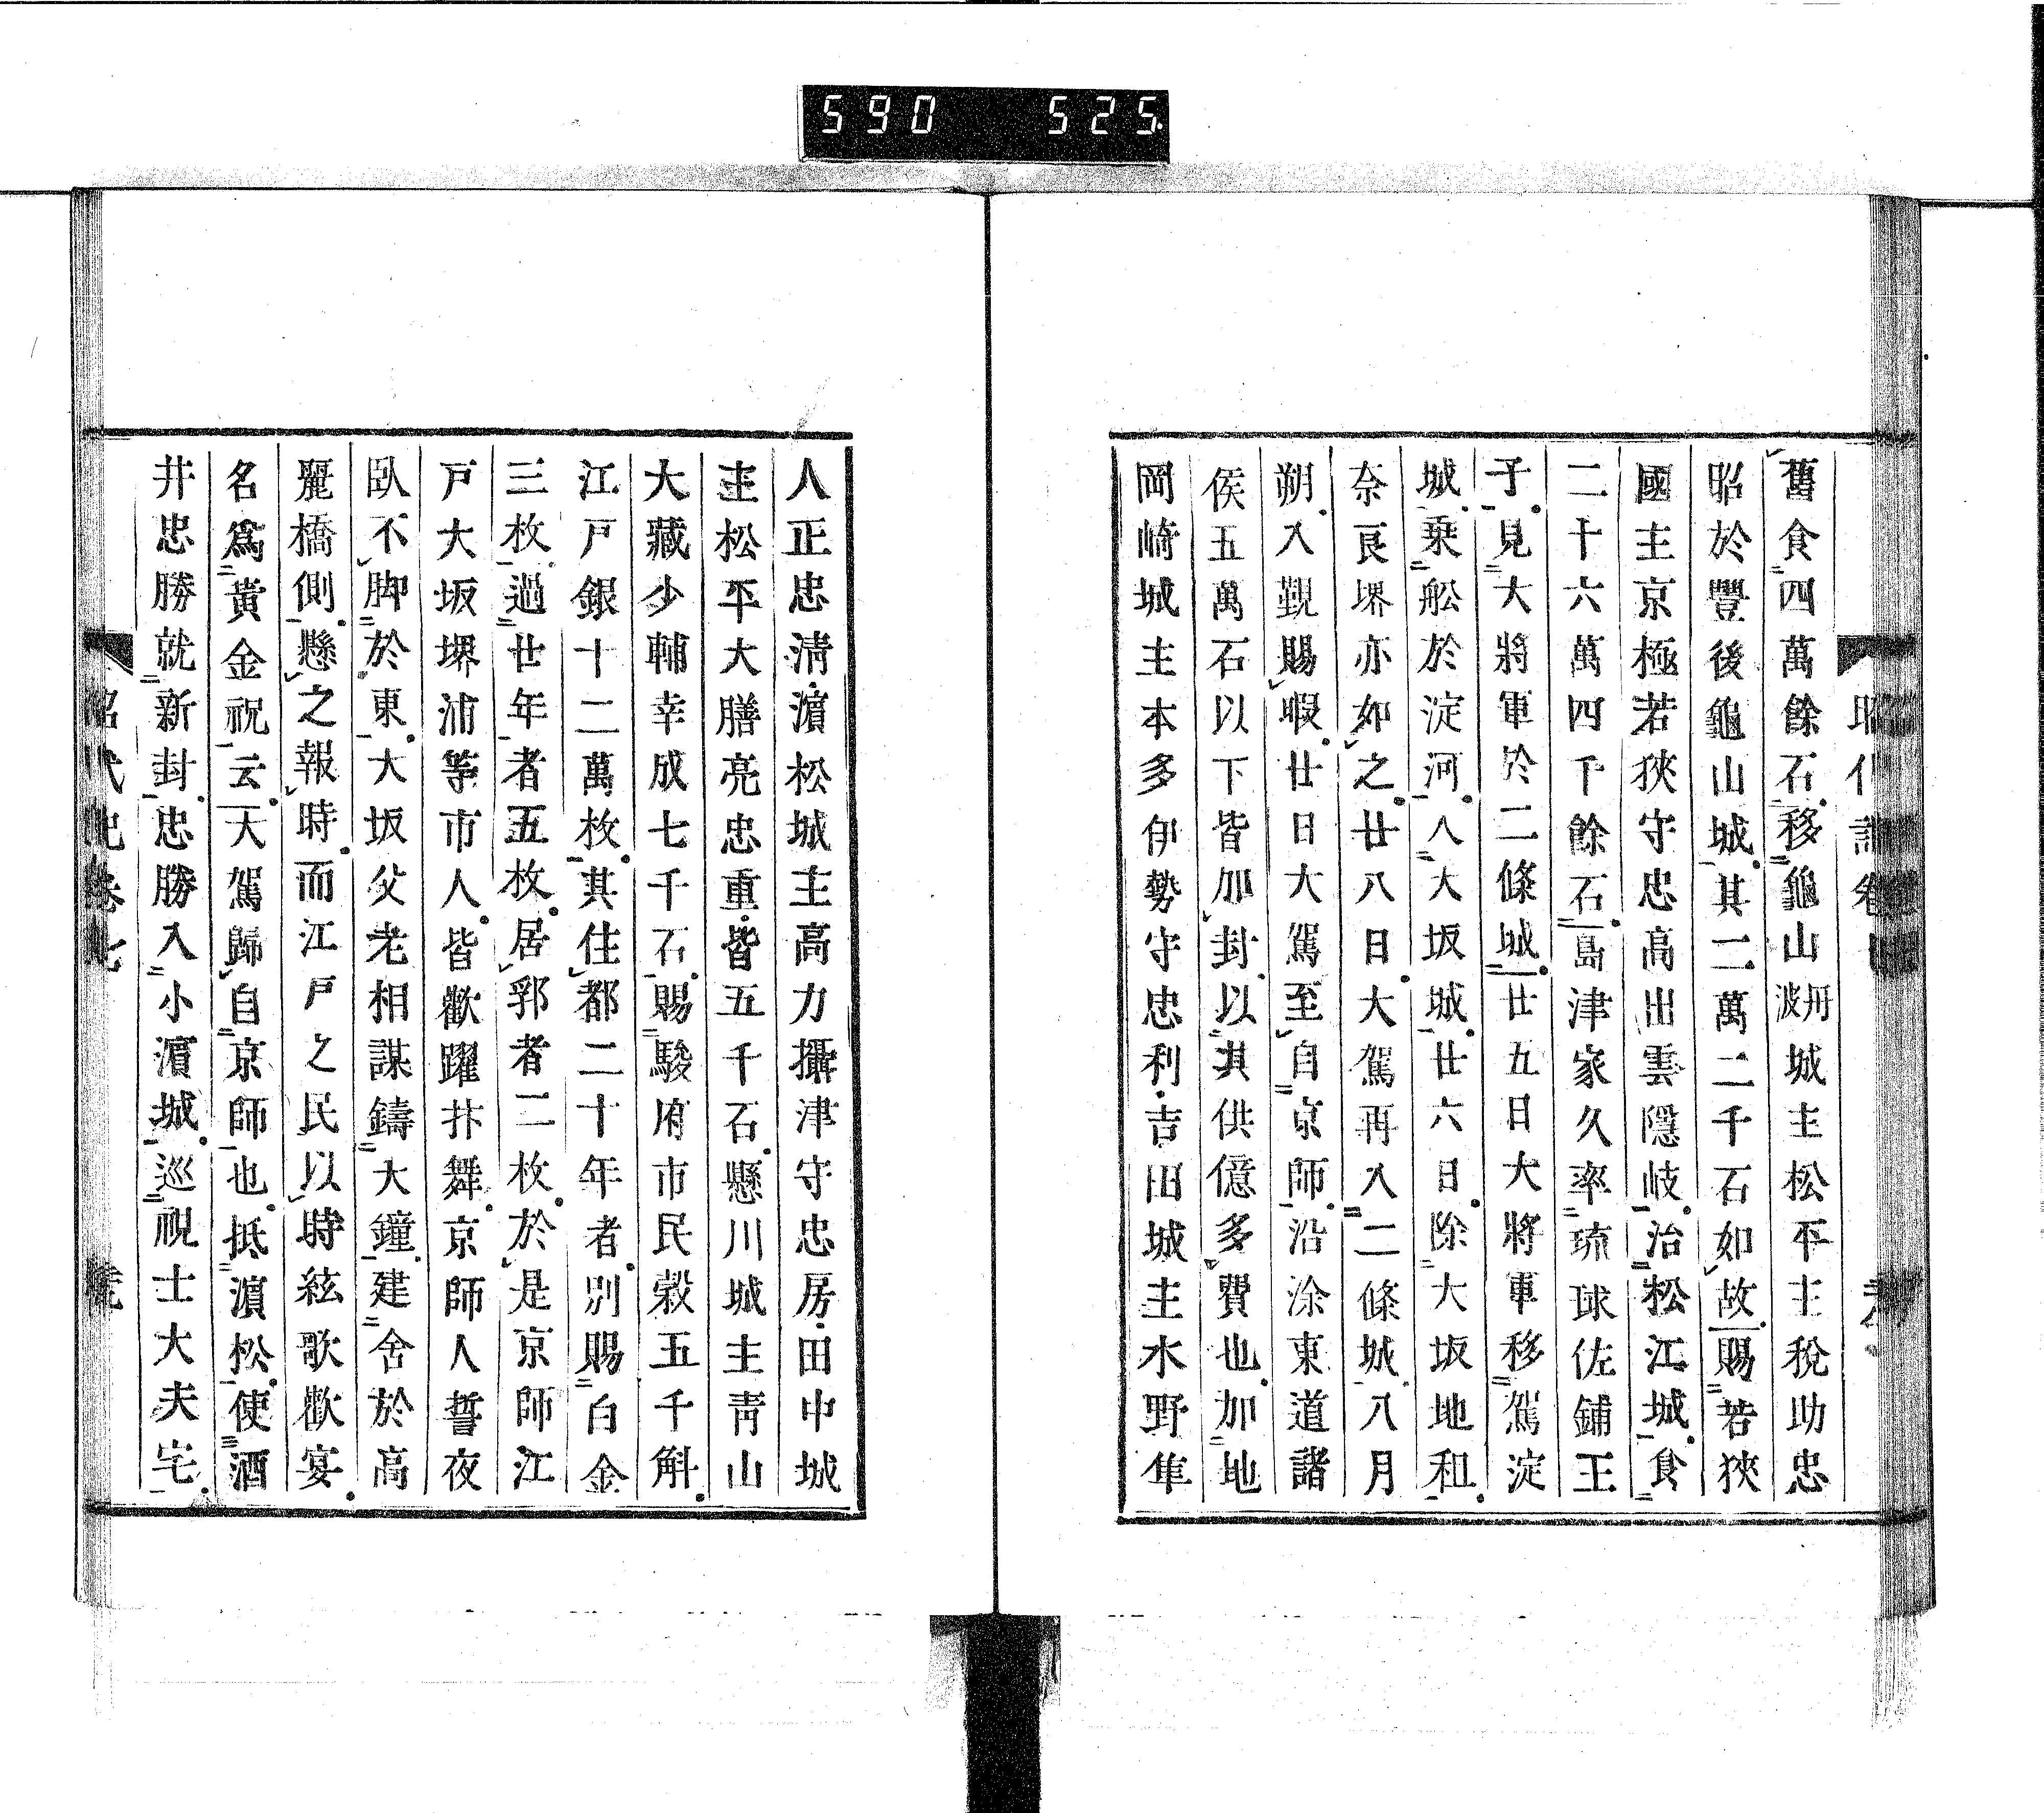 590 525
舊食四萬餘石移龜山丹波城主松平主稅助忠
昭於豐後龜山城其二萬二千石如故賜若狹
國主京極若狹守忠高出雲隱岐治松江城食
二十六萬四千餘石島津家久率琉球佐鋪王
子見大將軍於二條城廿五日大將軍移駕淀
城乗舩於淀河入大坂城廿六日除大坂地租
奈良堺亦如之廿八日大駕再入二條城八月
朔入覲賜暇廿日大駕至自京師沿涂東道諸
侯五萬石以下皆加封以其供億多費也加地
岡崎城主本多伊勢守忠利吉田城主水野隼
人正忠淸濱松城主高力攝津守忠房田中城
主松平大膳亮忠重皆五千石懸川城主靑山
大藏少輔幸成七千石賜駿府市民榖五千斛
江戸銀十二萬枚其住都二十年者別賜白金
三枚過廿年者五枚居郛者二枚於是京師江
戸大坂堺浦等市人皆歡躍抃舞京師人誓夜
臥不脚於東大坂父老相謀鑄大鐘建舍於高
麗橋側懸之報時而江戸之民以時絃歌歡宴
名爲黃金祝云大駕歸自京師也抵濱松使酒
井忠勝就新封忠勝入小濵城巡視士大夫宅
昭代記卷七